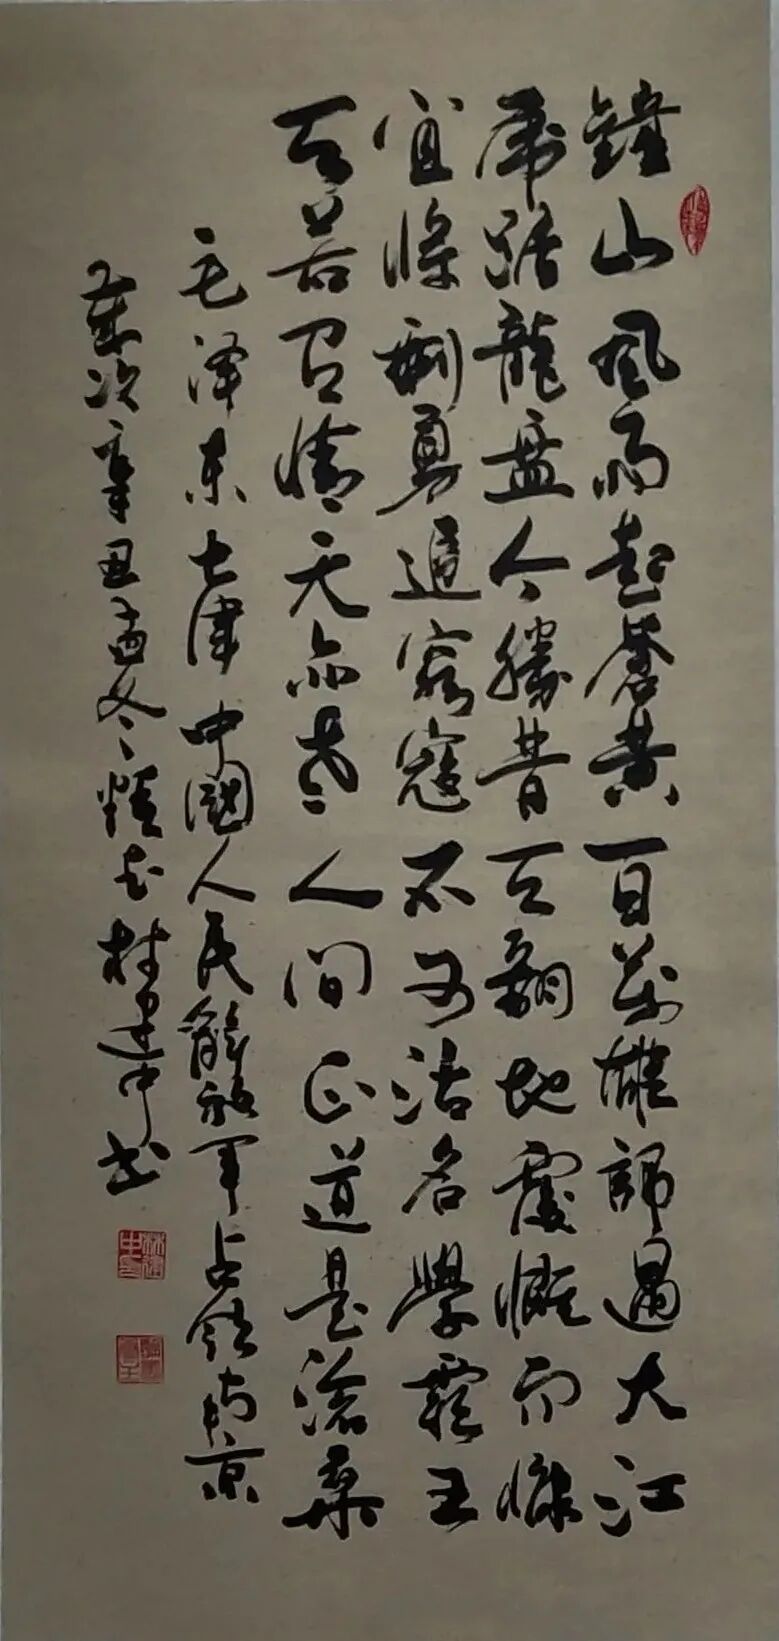 鐘山風雨起蒼黄百萬雄師過大江
虎踞龍盤今勝昔天翻地覆慨而慷
宜將剩勇追窮寇不可沽名學霸王
天若有情天亦老人間正道是滄桑
毛泽东七律中國人民解放軍占領南京
歲次辛丑孟冬林建中书